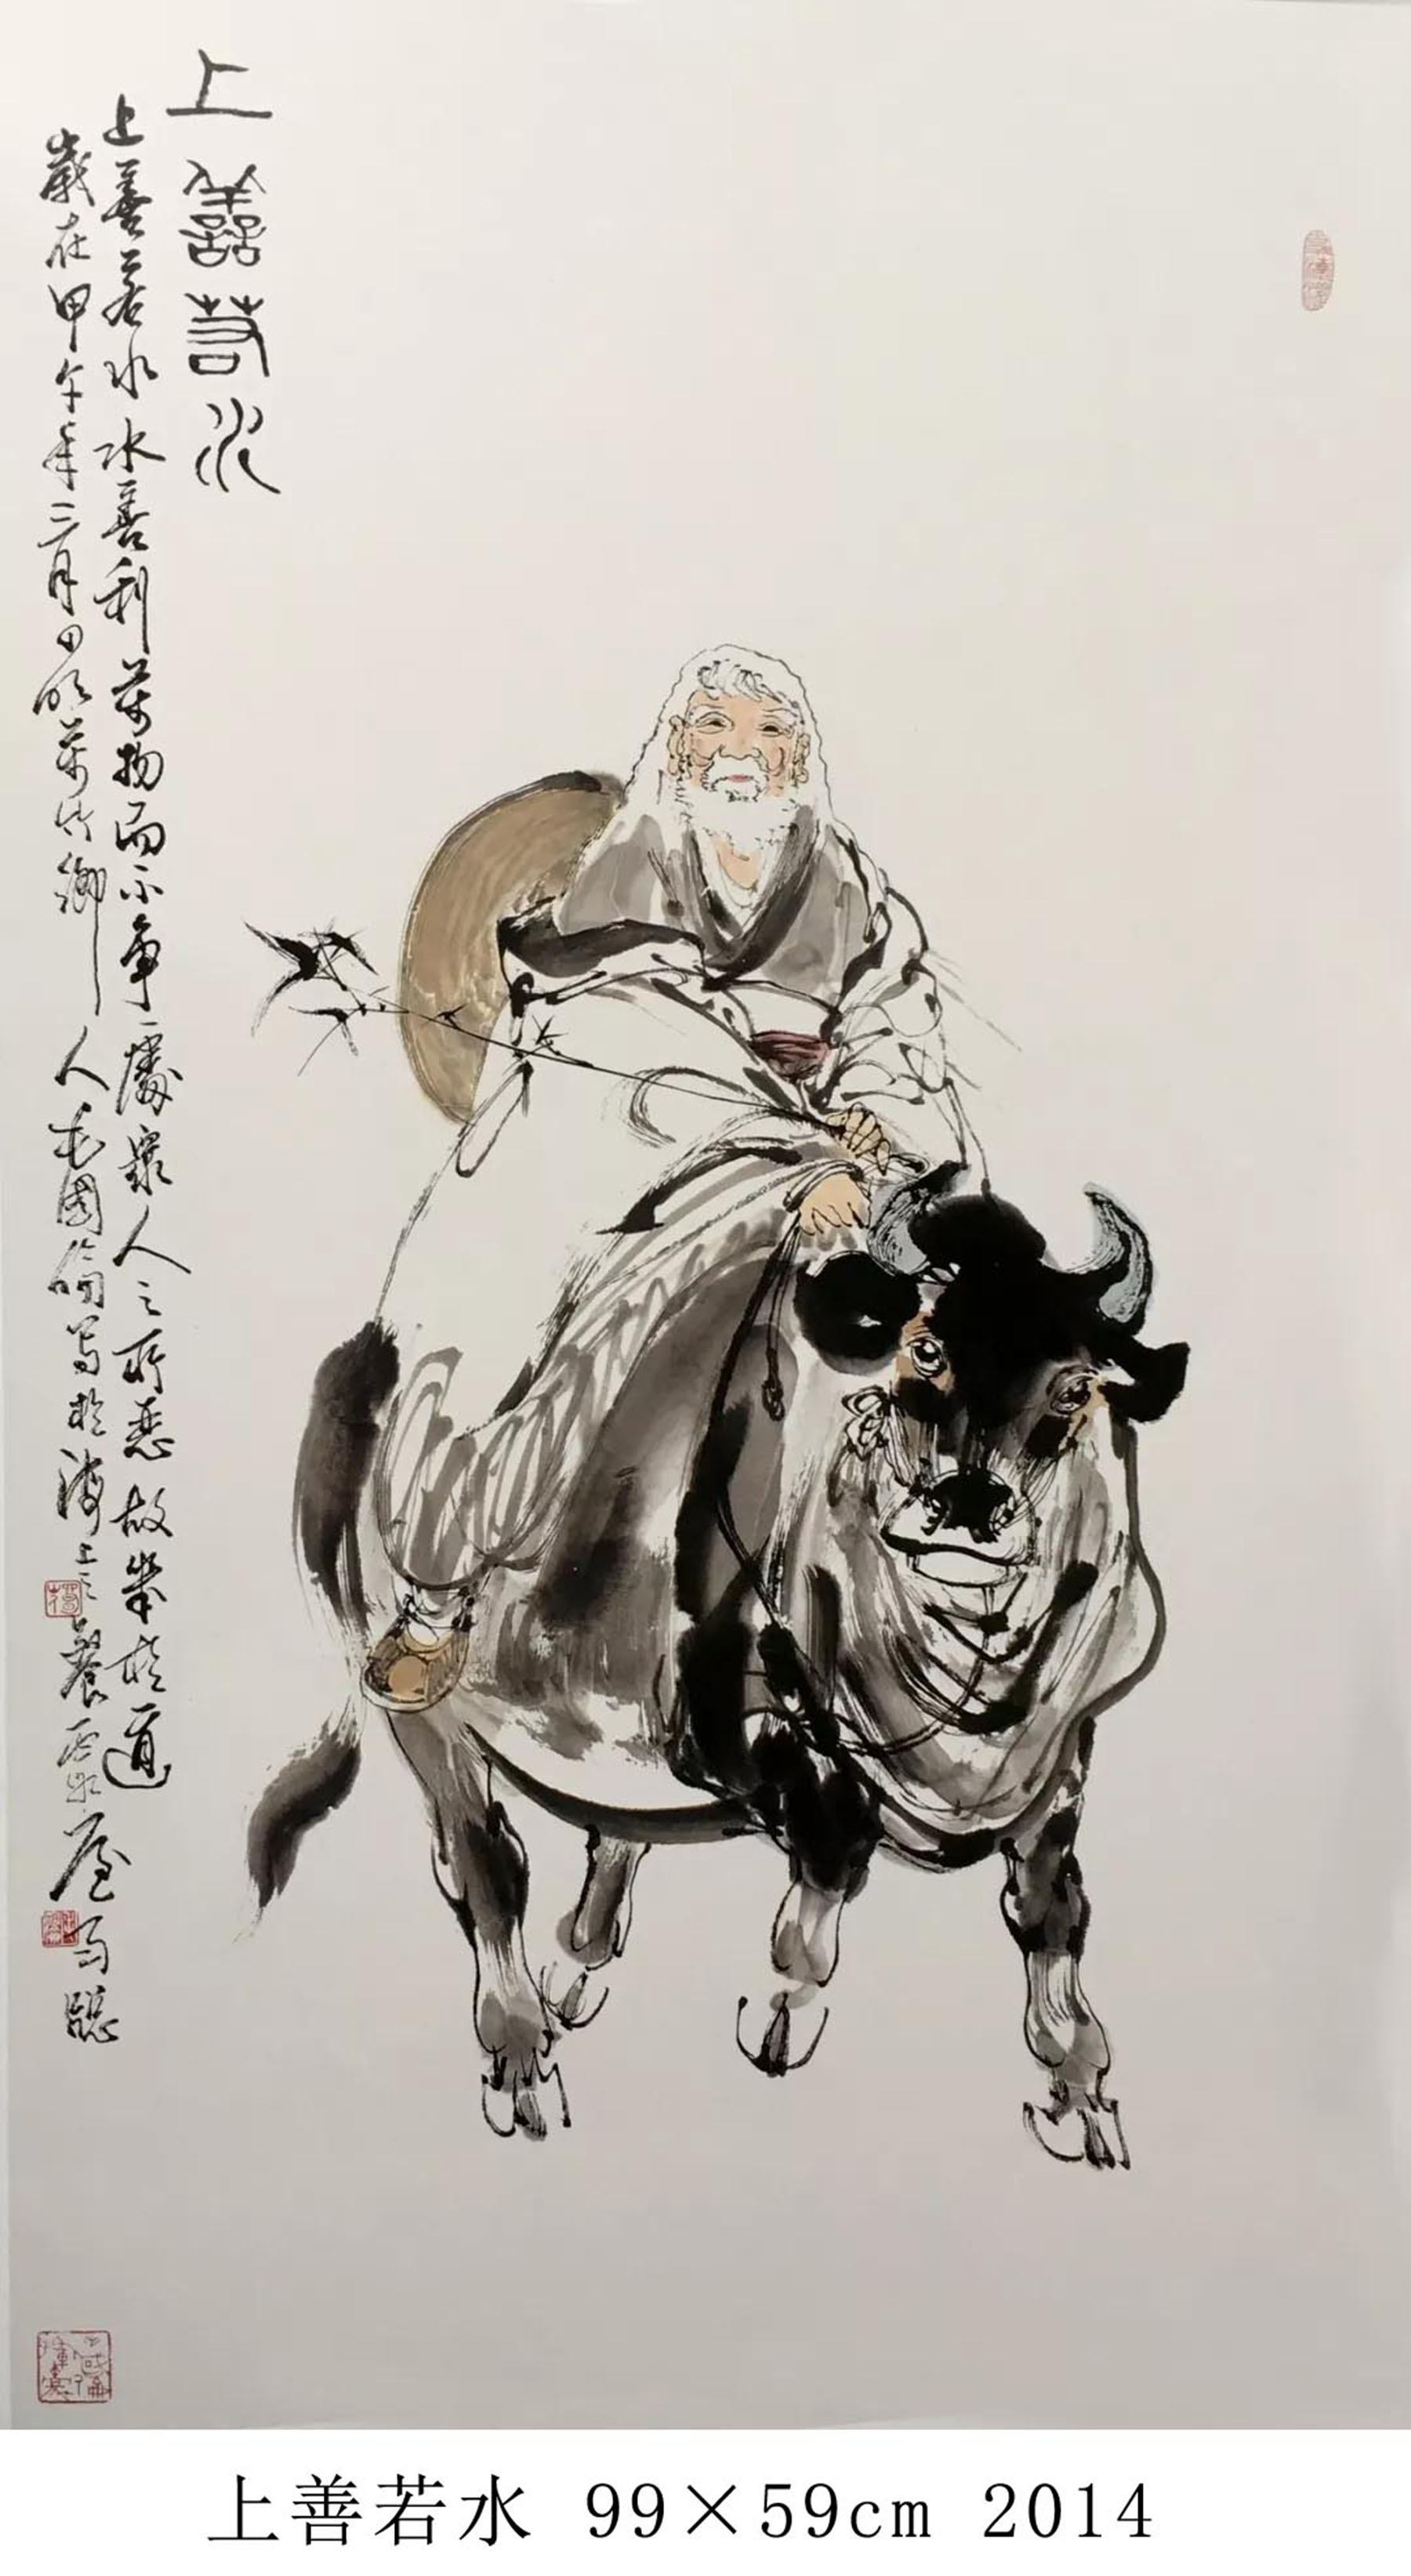 上善若水
上善若水水善利萬物而不争處衆人之所惡故幾於道
歲在甲午年三月四明萬竹鄉人毛國倫写於海上之養石泉屋
上善若水 99×59cm 2014